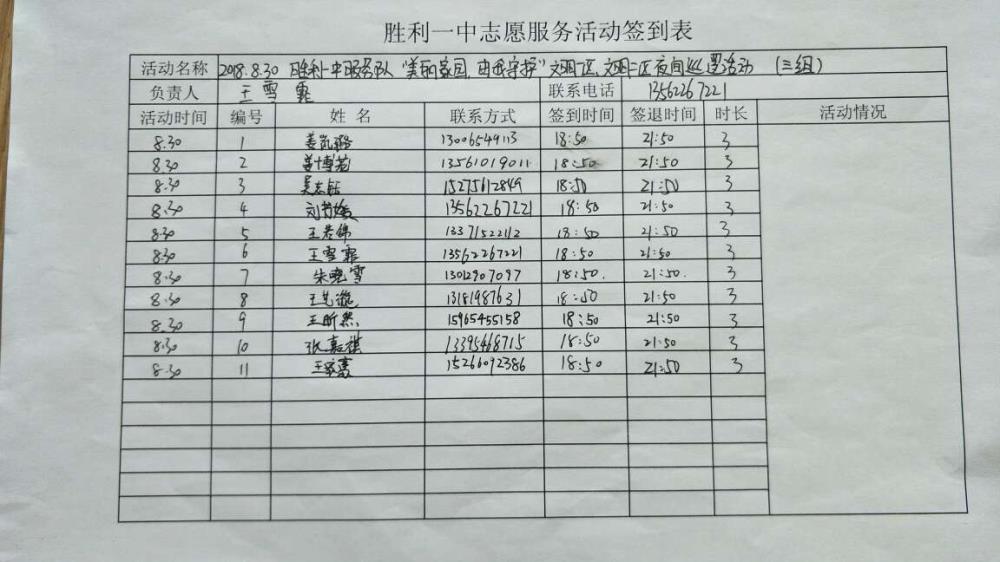 胜利一中志愿服务活动签到表
活动名称 2018.8.30 胜利一中服务队“美丽家园,由我守护”文明一区、文明二区夜间巡逻活动 (三组)
负责人 王雪霏 联系电话 13562267221
活动时间 编号 姓名 联系方式 签到时间 签退时间 时长 活动情况
8.30 1 姜凯璐 13006549113 18:50 21:50 3
8.30 2 姜博 13561019011 18:50 21:50 3
8.30 3 吴志钰 15275612849 18:50 21:50 3
8.30 4 刘 13562267221 18:50 21:50 3
8.30 5 王若锦 13371522112 18:50 21:50 3
8.30 6 王雪霏 13562267221 18:50 21:50 3
8.30 7 朱晓雪 13012907097 18:50. 21:50. 3
8.30 8 王艺璇 13181987631 18:50 21:50 3
8.30 9 王昕然 15965455158 18:50 21:50 3
8.30 10 张嘉祺 13395468715 18:50 21:50 3
8.30 11 王 15266092386 18:50 21:50 3